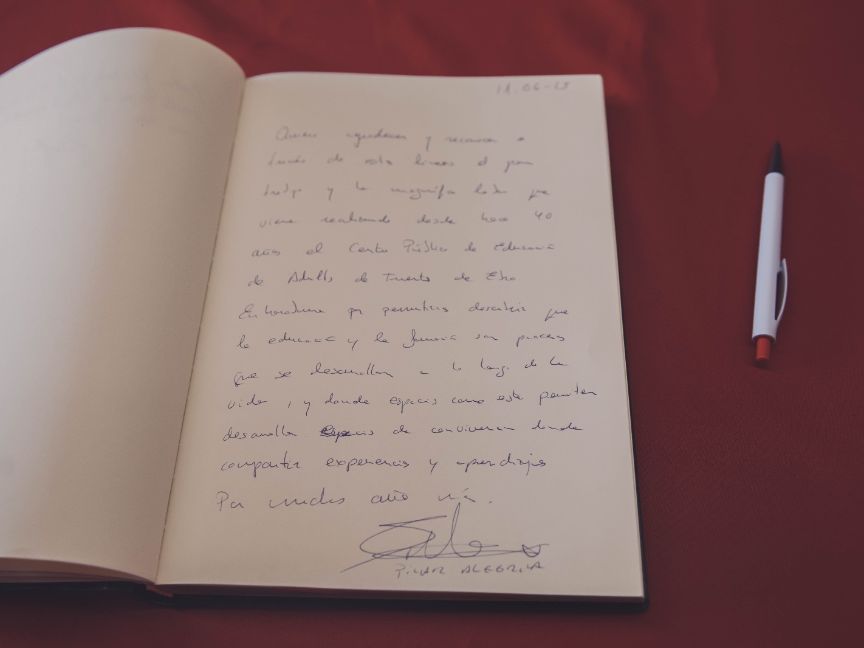 11.06-25
Quiero agradecer y reconocer a
través de estas líneas el gran
trabajo y la magnífica labor que
viene realizando desde hace 40
años el Centro Público de Educación
de Adultos de Fuentes de Ebro
Enhorabuena por permitirnos descubrir que
la educación y la formación son procesos
que se desarrollan a lo largo de la
vida, y donde espacios como este permiten
desarrollar de convivencia donde
compartir experiencias y aprendizajes
Por muchos años más.
PILAR ALEGRIA